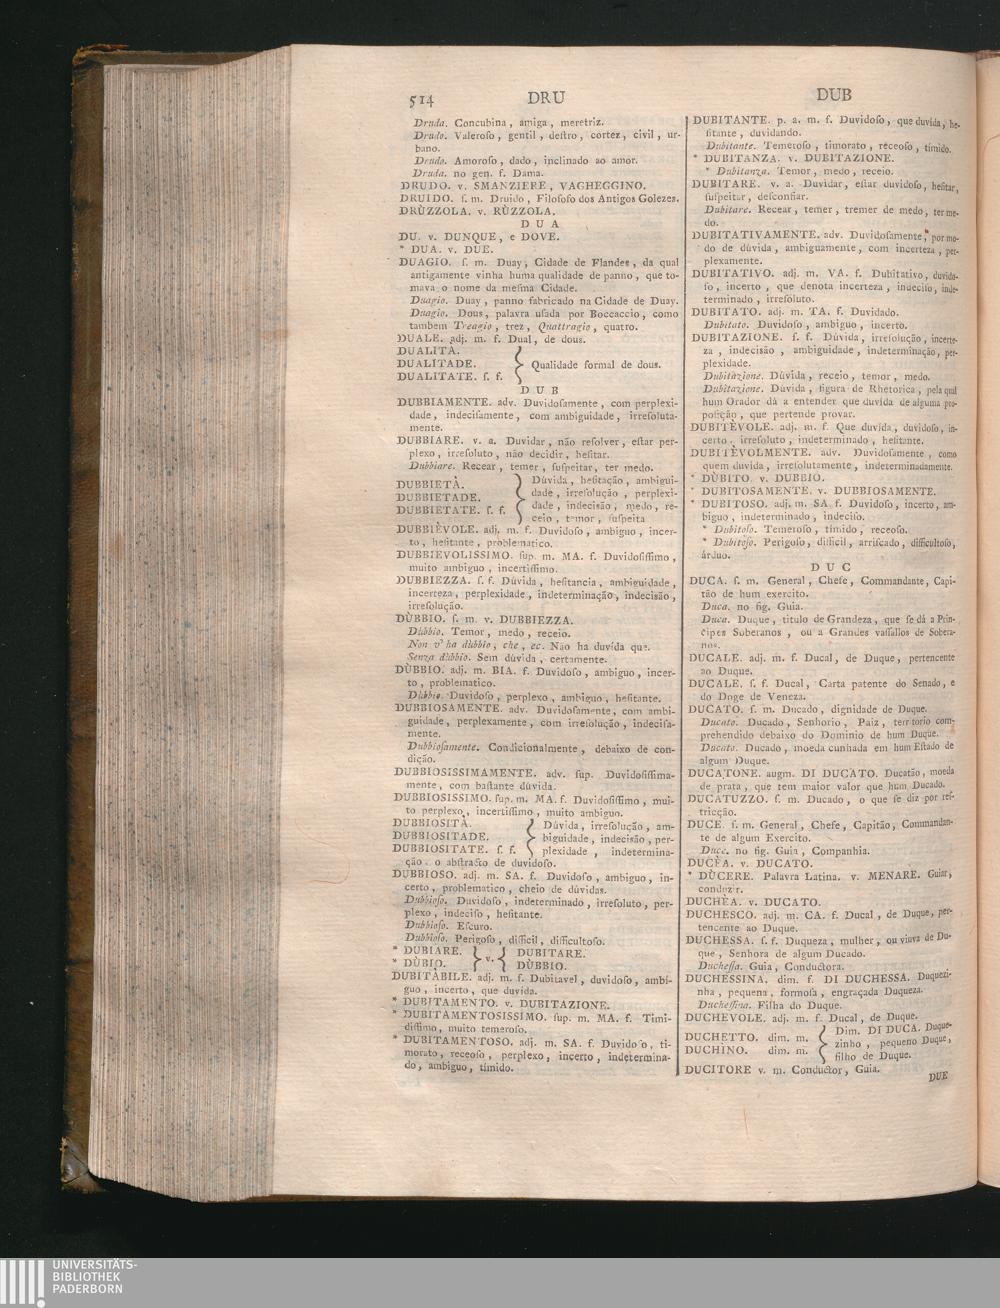 514 DRU DUB
Druda. Concubina, amiga, meretriz.
Drudo. Valeroſo, gentil, deſtro, cortez, civil, ur-
bano.
Drudo. Amoroſo, dado, inclinado ao amor.
Druda. no gen. f. Dama.
DRUDO. v. SMANZIERE, VAGHEGGINO.
DRUIDO. ſ. m. Druido, Filoſofo dos Antigos Golezes.
DRÙZZOLA. v. RÙZZOLA.
D U A
DU. v. DUNQUE, e DOVE.
* DUA. v. DUE.
DUAGIO. ſ. m. Duay, Cidade de Flandes, da qual
antigamente vinha huma qualidade de panno, que to-
mava o nome da meſma Cidade.
Duagio. Duay, panno fabricado na Cidade de Duay.
Duagio. Dous, palavra uſada por Boccaccio, como
tambem Treagio, trez, Quattragio, quatro.
DUALE. adj. m. f. Dual, de dous.
DUALITÀ.
DUALITADE. } Qualidade formal de dous.
DUALITATE. ſ. f.
D U B
DUBBIAMENTE. adv. Duvidoſamente, com perplexi-
dade, indeciſamente, com ambiguidade, irreſoluta-
mente.
DUBBIARE. v. a. Duvidar, não reſolver, eſtar per-
plexo, irreſoluto, não decidir, heſitar.
Dubbiare. Recear, temer, ſuſpeitar, ter medo.
DUBBIETÀ. } Dúvida, heſitação, ambigui-
DUBBIETADE. dade, irreſolução, perplexi-
DUBBIETATE. ſ. f. dade, indecisão, medo, re-
ceio, temor, ſuſpeita
DUBBIÈVOLE. adj. m. f. Duvidoſo, ambiguo, incer-
to, heſitante, problematico.
DUBBIEVOLISSIMO. ſup. m. MA. f. Duvidoſiſſimo,
muito ambiguo, incertiſſimo.
DUBBIEZZA. ſ. f. Dúvida, heſitancia, ambiguidade,
incerteza, perplexidade, indeterminação, indecisão,
irreſolução.
DÙBBIO. ſ. m. v. DUBBIEZZA.
Dùbbio. Temor, medo, receio.
Non v' ha dùbbio, che, ec. Não ha duvída que.
Senza dùbbio. Sem dúvida, certamente.
DÙBBIO. adj. m. BIA. f. Duvidoſo, ambiguo, incer-
to, problematico.
Dùbbio. Duvidoſo, perplexo, ambiguo, heſitante.
DUBBIOSAMENTE. adv. Duvidoſamente, com ambi-
guidade, perplexamente, com irreſolução, indeciſa-
mente.
Dubbioſamente. Condicionalmente, debaixo de con-
dição.
DUBBIOSISSIMAMENTE. adv. ſup. Duvidoſiſſima-
mente, com baſtante dúvida.
DUBBIOSISSIMO. ſup. m. MA. f. Duvidoſiſſimo, mui-
to perplexo, incertiſſimo, muito ambiguo.
DUBBIOSITÀ. } Dúvida, irreſolução, am-
DUBBIOSITADE. biguidade, indecisão, per-
DUBBIOSITATE. ſ. f. plexidade, indetermina-
ção. o abſtracto de duvidoſo.
DUBBIOSO. adj. m. SA. f. Duvidoſo, ambiguo, in-
certo, problematico, cheio de dúvidas.
Dubbioſo. Duvidoſo, indeterminado, irreſoluto, per-
plexo, indeciſo, heſitante.
Dubbioſo. Eſcuro.
Dubbioſo. Perigoſo, difficil, difficultoſo.
* DUBIARE. } v. { DUBITARE.
* DÙBIO. DÙBBIO.
DUBITÀBILE. adj. m. f. Dubitavel, duvidoſo, ambi-
guo, incerto, que duvída.
* DUBITAMENTO. v. DUBITAZIONE.
* DUBITAMENTOSISSIMO. ſup. m. MA. f. Timi-
diſſimo, muito temeroſo.
* DUBITAMENTOSO. adj. m. SA. f. Duvidoſo, ti-
morato, receoſo, perplexo, incerto, indetermina-
do, ambiguo, timido.
DUBITANTE. p. a. m. f. Duvidoſo, que duvída, he-
ſitante, duvidando.
Dubitante. Temeroſo, timorato, receoſo, tímido.
* DUBITANZA. v. DUBITAZIONE.
* Dubitanza. Temor, medo, receio.
DUBITARE. v. a. Duvidar, eſtar duvidoſo, heſitar,
ſuſpeitar, deſconfiar.
Dubitare. Recear, temer, tremer de medo, ter me-
do.
DUBITATIVAMENTE. adv. Duvidoſamente, por mo-
do de dúvida, ambiguamente, com incerteza, per-
plexamente.
DUBITATIVO. adj. m. VA. f. Dubitativo, duvido-
ſo, incerto, que denota incerteza, indeciſo, inde-
terminado, irreſoluto.
DUBITATO. adj. m. TA. f. Duvidado.
Dubitato. Duvidoſo, ambiguo, incerto.
DUBITAZIONE. ſ. f. Dúvida, irreſolução, incerte-
za, indecisão, ambiguidade, indeterminação, per-
plexidade.
Dubitazione. Dúvida, receio, temor, medo.
Dubitazione. Dúvida, figura de Rhetorica, pela qual
hum Orador dá a entender que duvida de alguma pro-
poſição, que pertende provar.
DUBITÈVOLE. adj. m. f. Que duvida, duvidoſo, in-
certo, irreſoluto, indeterminado, heſitante.
DUBITÈVOLMENTE. adv. Duvidoſamente, como
quem duvida, irreſolutamente, indeterminadamente.
* DÙBITO. v. DUBBIO.
* DUBITOSAMENTE. v. DUBBIOSAMENTE.
* DUBITOSO. adj. m. SA. f. Duvidoſo, incerto, am-
biguo, indeterminado, indeciſo.
* Dubitoſo. Temeroſo, timido, receoſo.
* Dubitoſo. Perigoſo, difficil, arriſcado, difficultoſo,
árduo.
D U C
DUCA. ſ. m. General, Chefe, Commandante, Capi-
tão de hum exercito.
Duca. no fig. Guia.
Duca. Duque, titulo de Grandeza, que ſe dá a Prin-
cipes Soberanos, ou a Grandes vaſſallos de Sobera-
nos.
DUCALE. adj. m. f. Ducal, de Duque, pertencente
ao Duque.
DUCALE. ſ. f. Ducal, Carta patente do Senado, e
do Doge de Veneza.
DUCATO. ſ. m. Ducado, dignidade de Duque.
Ducato. Ducado, Senhorio, Paiz, territorio com-
prehendido debaixo do Dominio de hum Duque.
Ducato. Ducado, moeda cunhada em hum Eſtado de
algum Duque.
DUCATONE. augm. DI DUCATO. Ducatão, moeda
de prata, que tem maior valor que hum Ducado.
DUCATUZZO. ſ. m. Ducado, o que ſe diz por reſ-
tricção.
DUCE. ſ. m. General, Chefe, Capitão, Commandan-
te de algum Exercito.
Duce. no fig. Guia, Companhia.
DUCÈA. v. DUCATO.
* DÙCERE. Palavra Latina. v. MENARE. Guiar,
conduzir.
DUCHÈA. v. DUCATO.
DUCHESCO. adj. m. CA. f. Ducal, de Duque, per-
tencente ao Duque.
DUCHESSA. ſ. f. Duqueza, mulher, ou viuva de Du-
que, Senhora de algum Ducado.
Ducheſſa. Guia, Conductora.
DUCHESSINA. dim. f. DI DUCHESSA. Duquezi-
nha, pequena, formoſa, engraçada Duqueza.
Ducheſſina. Filha do Duque.
DUCHEVOLE. adj. m. f. Ducal, de Duque.
DUCHETTO. dim. m. { Dim. DI DUCA. Duque-
DUCHINO. dim. m. zinho, pequeno Duque,
filho de Duque.
DUCITORE v. m. Conductor, Guia.
DUE
UNIVERSITÄTS-
BIBLIOTHEK
PADERBORN